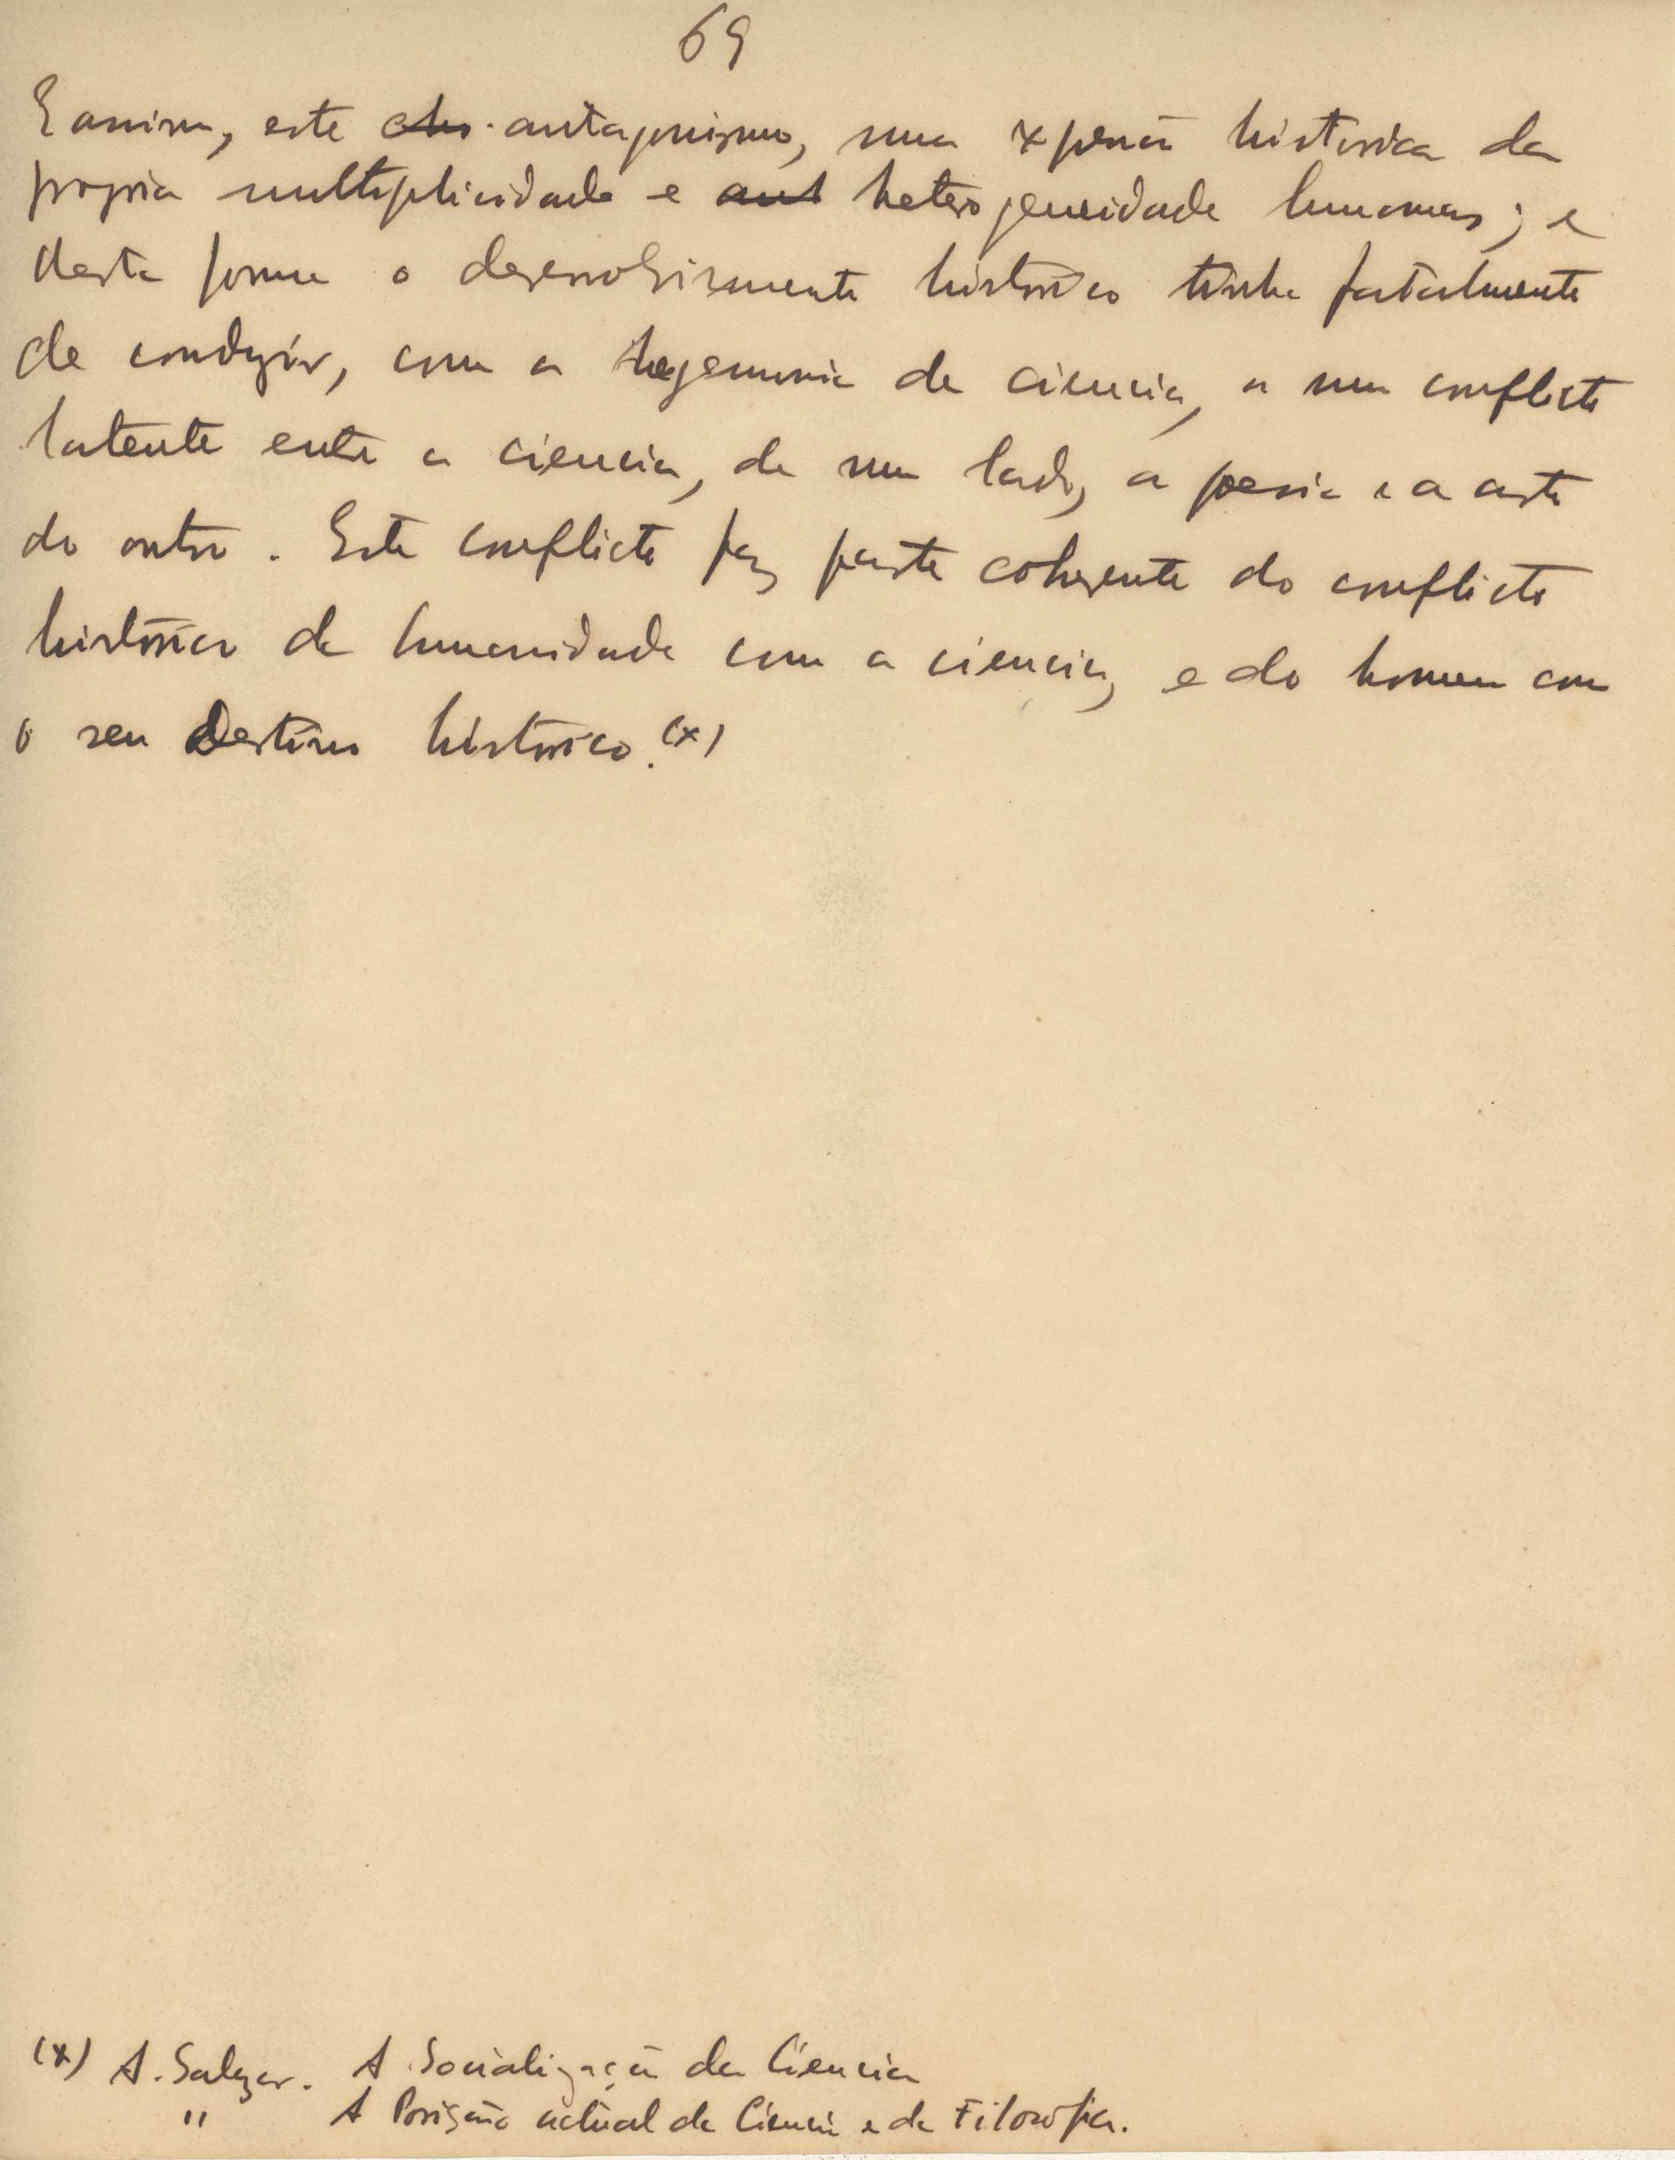 69
E assim, este antagonismo, uma expressão historica da
propria multiplicidade e heterogeneidade humanas; e
desta forma o desenvolvimento histórico tinha fatalmente
de conduzir, com a hegemonia da ciencia, a um conflicto
latente entre a ciencia, de um lado, a poesia e a arte
do outro. Este conflicto faz parte coherente do conflicto
histórico da humanidade com a ciencia, e do homem com
o seu Destino histórico. (x)
(x) A. Salazar. A Socialização da Ciencia
" A Posição actual da Ciencia e da Filosofia.